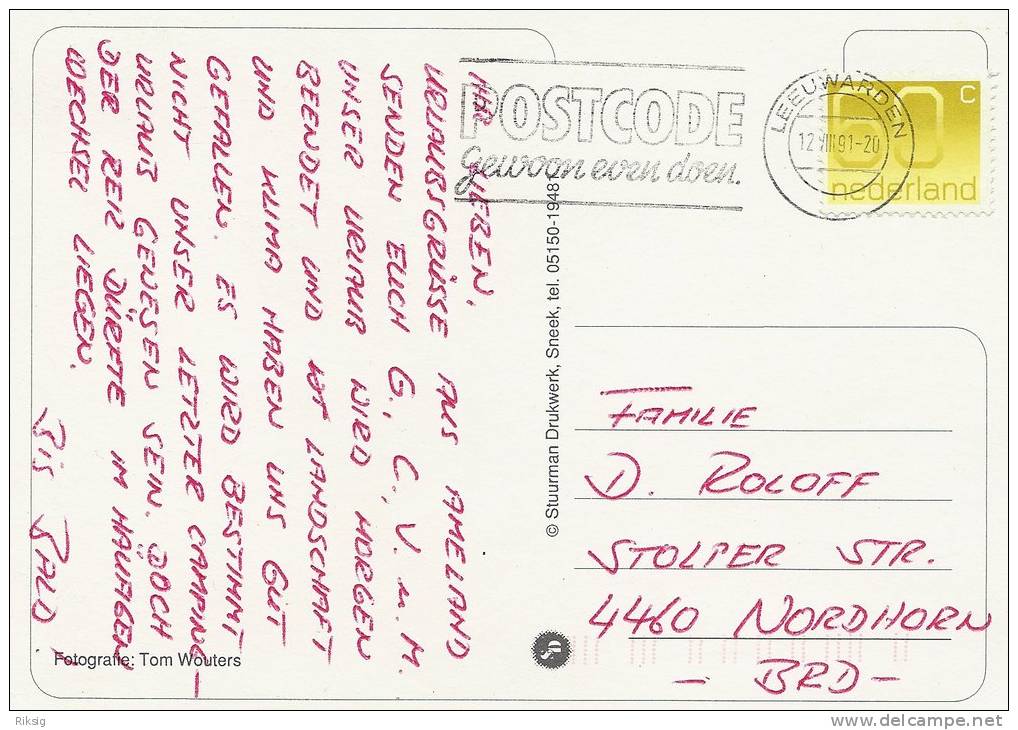 IHR LIEBEN,
URLAUBSGRÜSSE AUS AMELAND
SENDEN EUCH G., C., V. u. M.
UNSER URLAUB WIRD MORGEN
BEENDET UND IST LANDSCHAFT
UND KLIMA HABEN UNS GUT
GEFALLEN. ES WIRD BESTIMMT
NICHT UNSER LETZTER CAMPING-
URLAUB GEWESEN SEIN. DOCH
DER REIZ DÜRFTE IM HÄUFIGEN
WECHSEL LIEGEN.
BIS BALD
POSTCODE
Gewoon even doen.
LEEUWARDEN
12 VIII 91-20
60 C
nederland
© Stuurman Drukwerk, Sneek, tel. 05150-19481
FAMILIE
D. ROLOFF
STOLPER STR.
4460 NORDHORN
- BRD -
Fotografie: Tom Wouters
SD
Riksig
www.delcampe.net